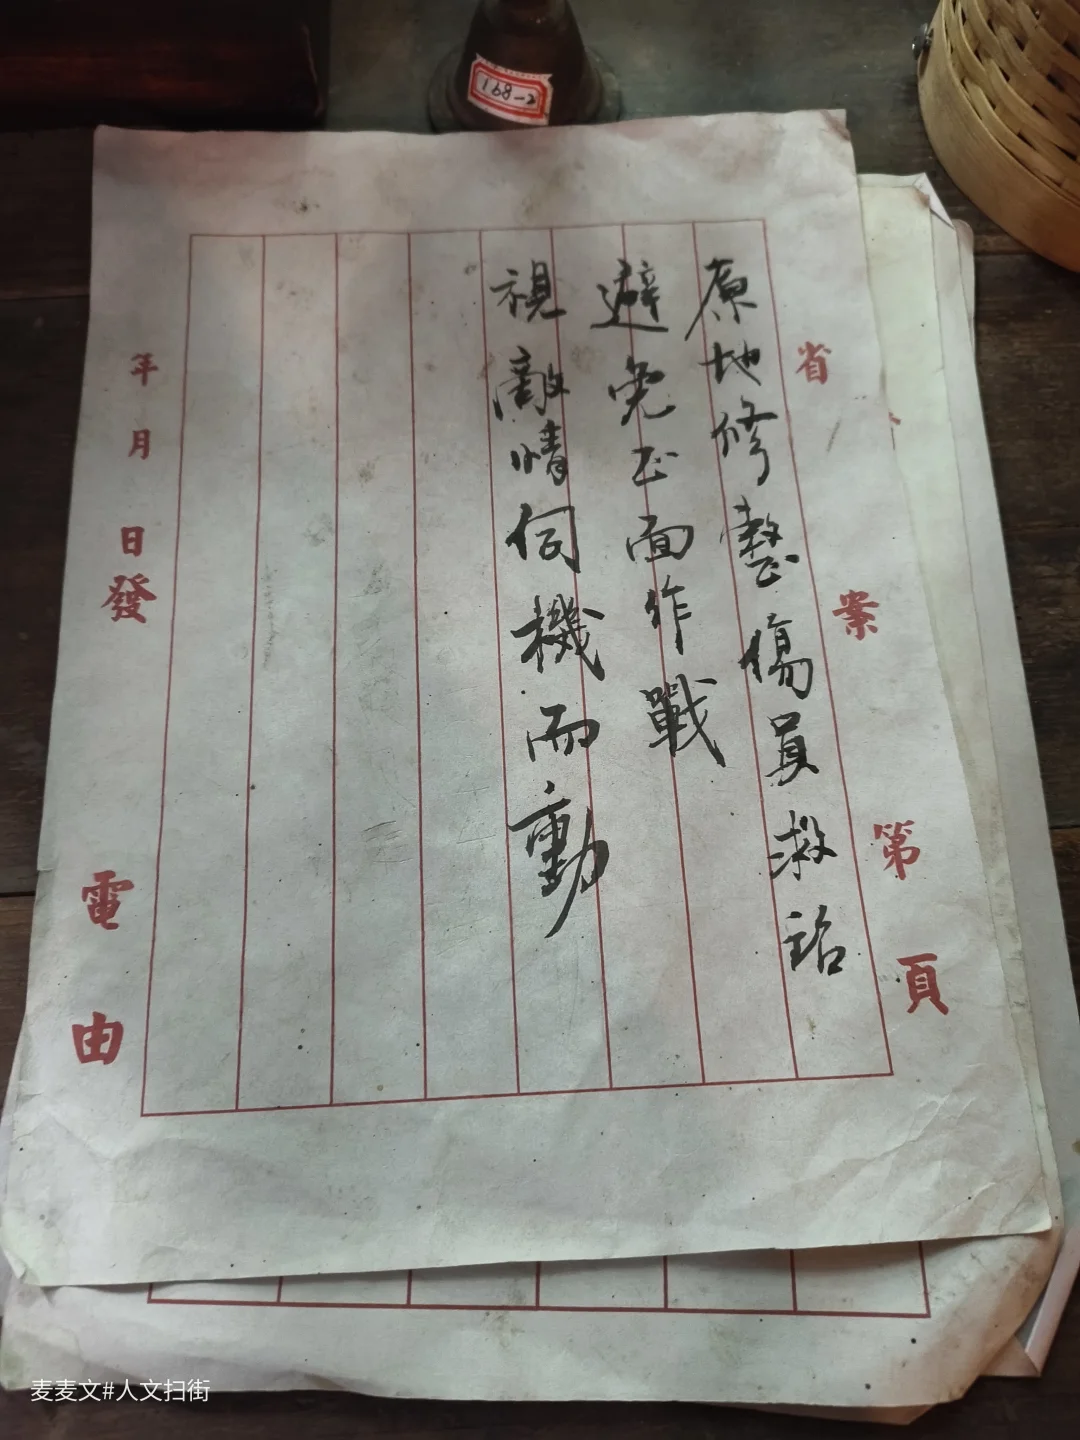 168-2
省
案
第
頁
原地修整傷員救治
避免正面作戰
視敵情伺機而動
年
月
日
發
電
由
麦麦文#人文扫街